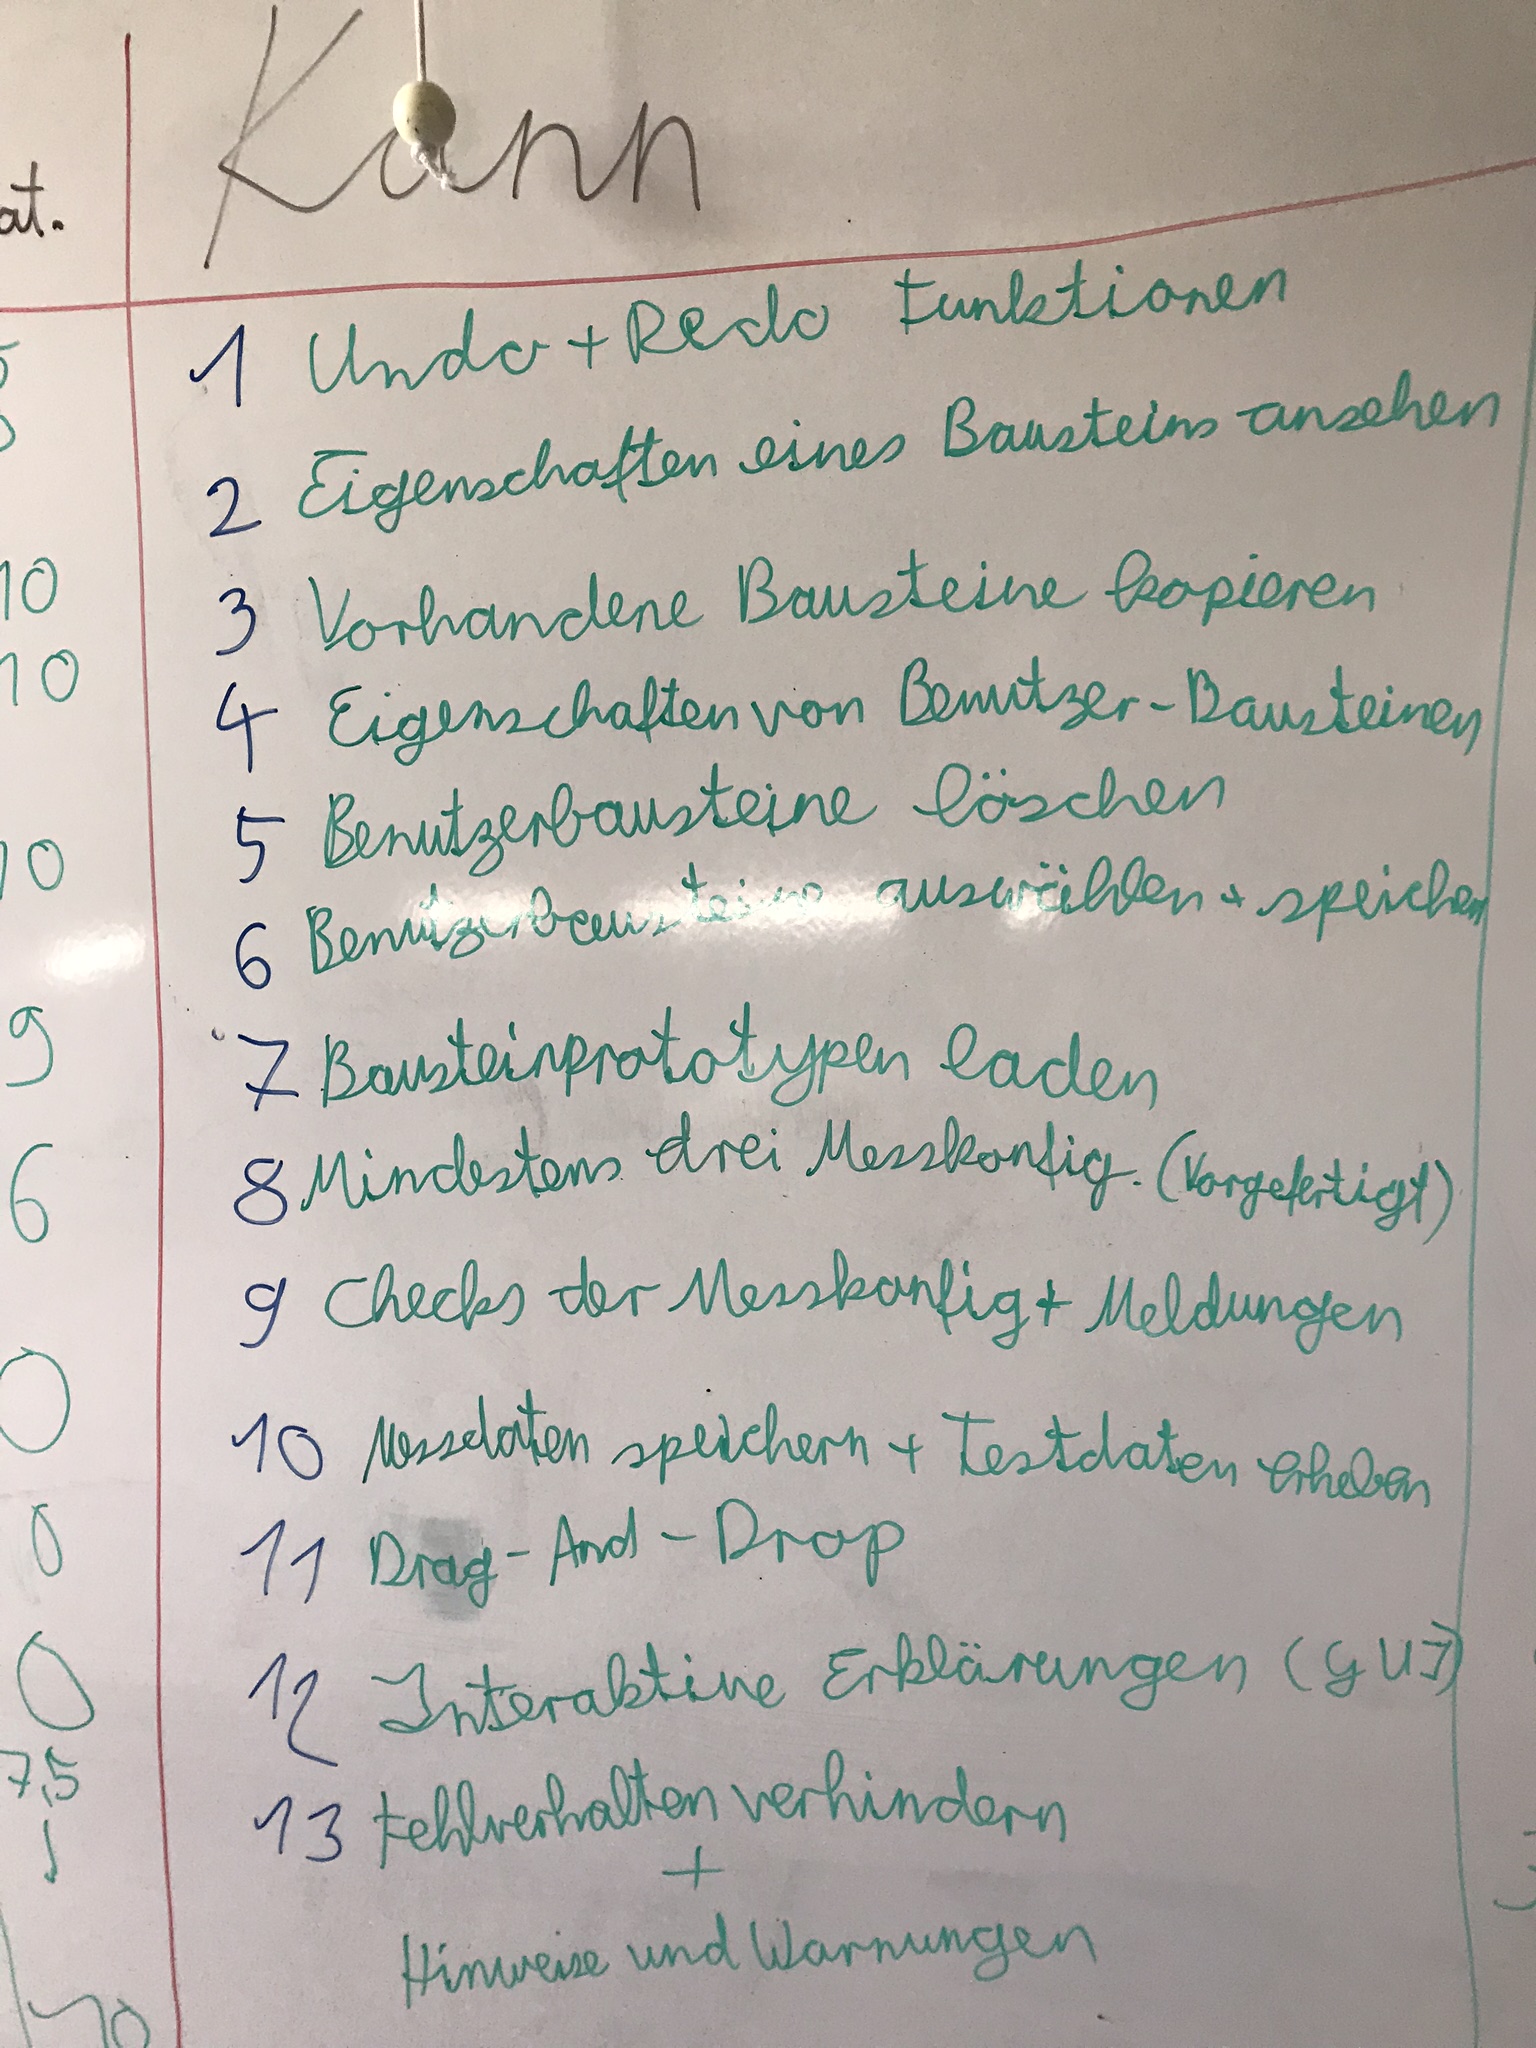 at.
Kann
1 Undo + Redo Funktionen
2 Eigenschaften eines Bausteins ansehen
3 Vorhandene Bausteine kopieren
10
4 Eigenschaften von Benutzer-Bausteinen
10
5 Benutzerbausteine löschen
10
6 Benutzerbausteine auswählen + speichern
7 Bausteinprototypen laden
9
8 Mindestens drei Messkonfig. (Vorgefertigt)
6
9 Checks der Messkonfig + Meldungen
0
10 Messdaten speichern + Testdaten erheben
11 Drag-And-Drop
0
12 Interaktive Erklärungen (GUI)
0
7,5
13 Fehlverhalten verhindern
+
Hinweise und Warnungen